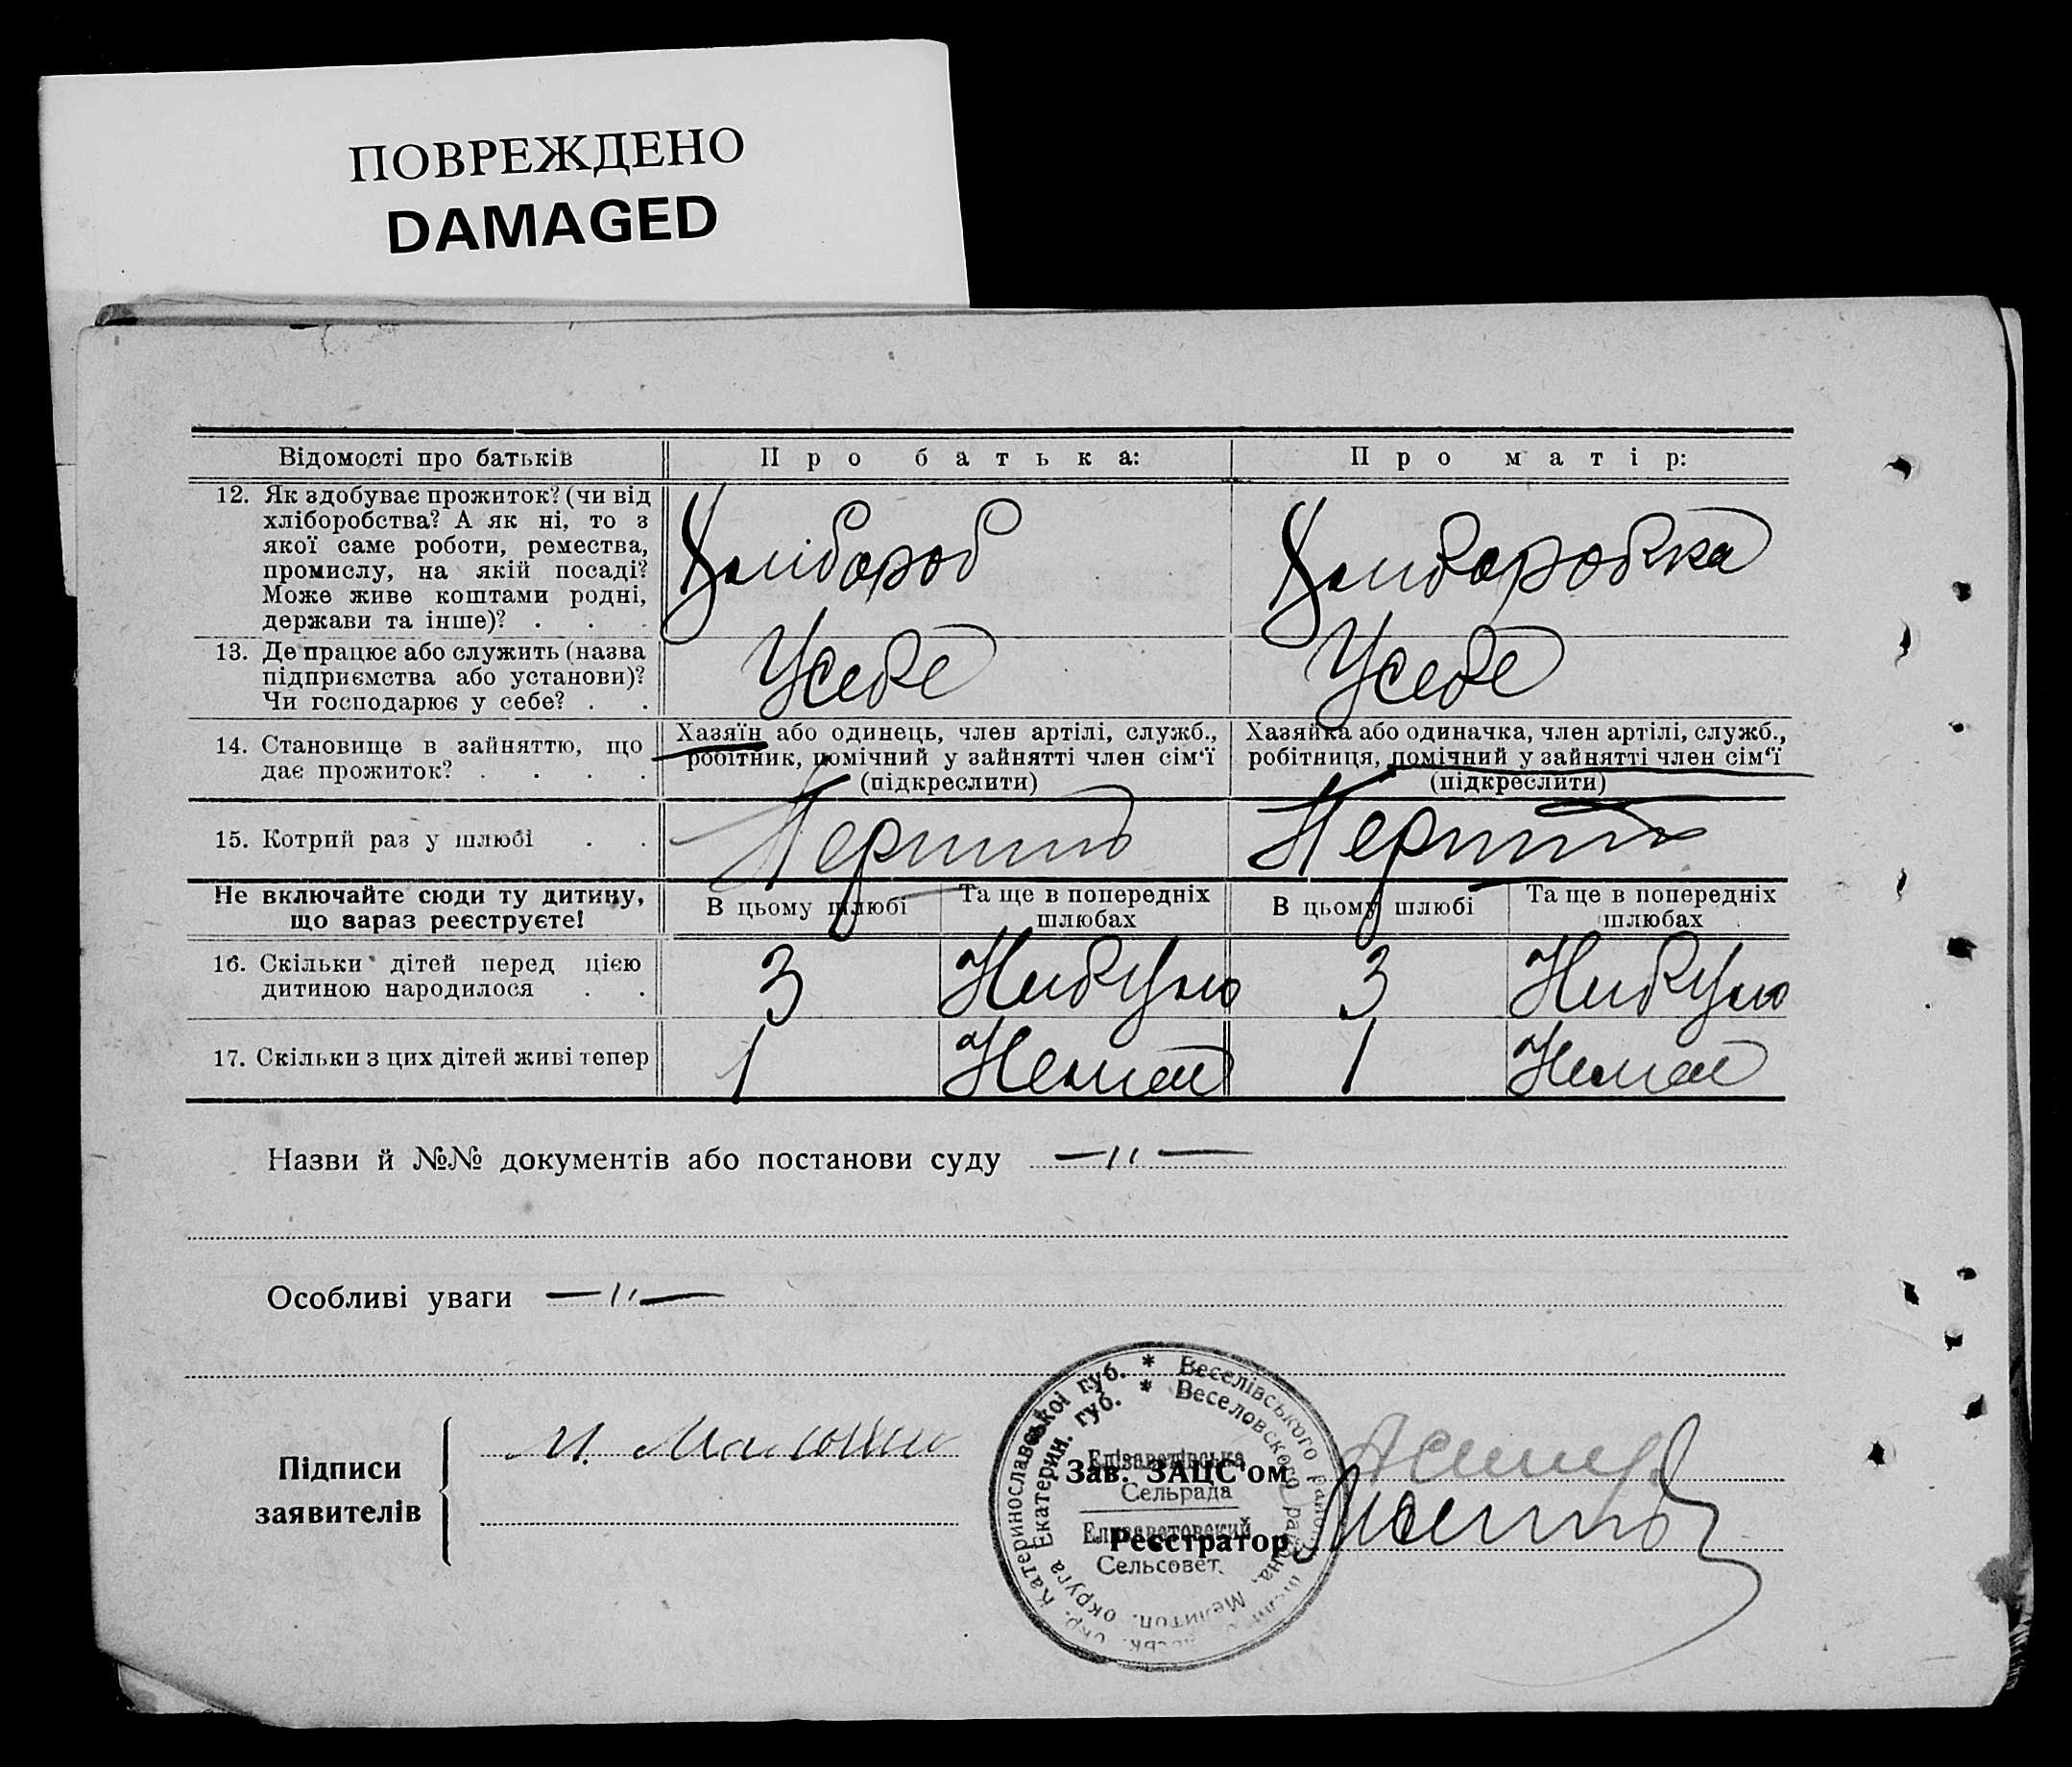 ПОВРЕЖДЕНО
DAMAGED
Відомості про батьків
Про батька:
Про матір:
12. Як здобуває прожиток? (чи від
хліборобства? А як ні, то з
якої саме роботи, ремества,
промислу, на якій посаді?
Може живе коштами родні,
держави та інше)? . . .
Хлибороб
Хлиборобка
13. Де працює або служить (назва
підприємства або установи)?
Чи господарює у себе? . .
Усебе
Усебе
14. Становище в зайняттю, що
дає прожиток? . . . .
Хазяїн або одинець, член артілі, служб.,
робітник, помічний у зайнятті член сім'ї
(підкреслити)
Хазяйка або одиначка, член артілі, служб.,
робітниця, помічний у зайнятті член сім'ї
(підкреслити)
15. Котрий раз у шлюбі . .
Перший
Перший
Не включайте сюди ту дитину,
що зараз реєструєте!
В цьому шлюбі
Та ще в попередніх
шлюбах
В цьому шлюбі
Та ще в попередніх
шлюбах
16. Скільки дітей перед цією
дитиною народилося . .
3
Нибуло
3
Нибуло
17. Скільки з цих дітей живі тепер
1
Немає
1
Немає
Назви й №№ документів або постанови суду —"—
Особливі уваги —"—
Підписи
заявителів
И.
Зав. ЗАЦС'ом
Реєстратор
Катеринославської губ. * Веселівського району
Екатерин. губ. * Веселовского района, Мелитоп. округа
Елізаветівська
Сельрада
Елизаветовский
Сельсовет.